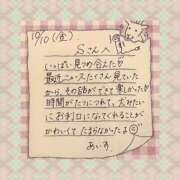 10/10 (金)
Sさんへ
いっぱい見つめ合えたり
最近ニュースたくさん見ていた
から、その話ができて楽しかった
時間がたつにつれて、大好きない
にお利口になってくれることが
かわいくて たまらなかったよ☺
あいす